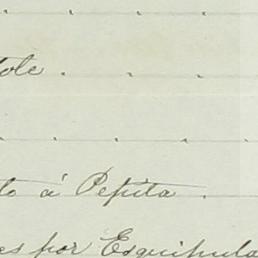 tole . . .
. . . . .
to á Pepita .
es por Esquipula